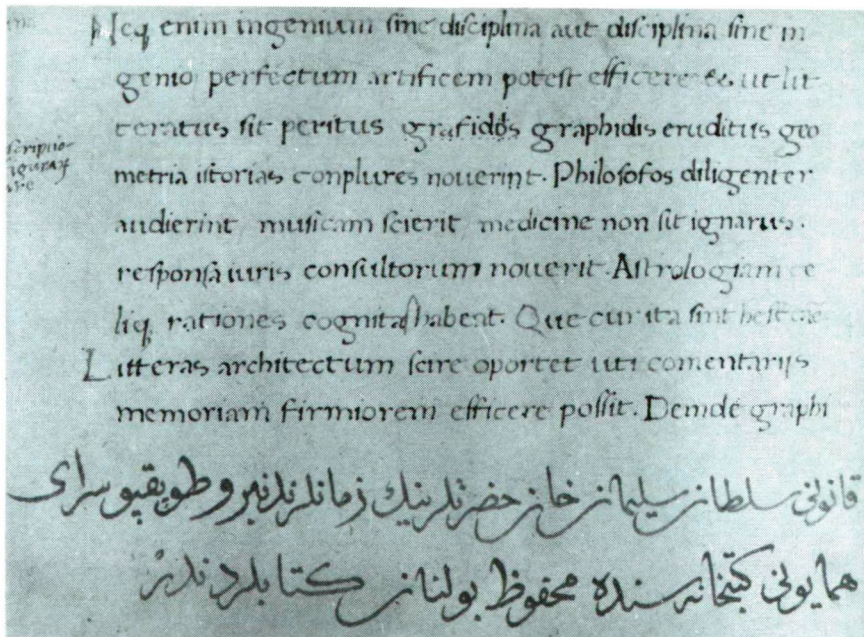 Neq enim ingenium sine disciplina aut disciplina sine in
genio perfectum artificem potest efficere & ut lit
teratus sit peritus grafidos graphidis eruditus geo
metria istorias conplures nouerint. Philosofos diligenter
audierint musicam scierit medicine non sit ignarus.
responsa iuris consultorum nouerit. Astrologiam ce
liq rationes cognitas habeat. Que cur ita sint
Litteras architectum scire oportet uti comentarijs
memoriam firmiorem efficere possit. Deinde graphi
قانونی سلطان سلیمان خان حضرتلرینك زمانلرندنبرو طوپقپو سرای
همایونی كتبخانه سنده محفوظ بولنان كتابلردندر